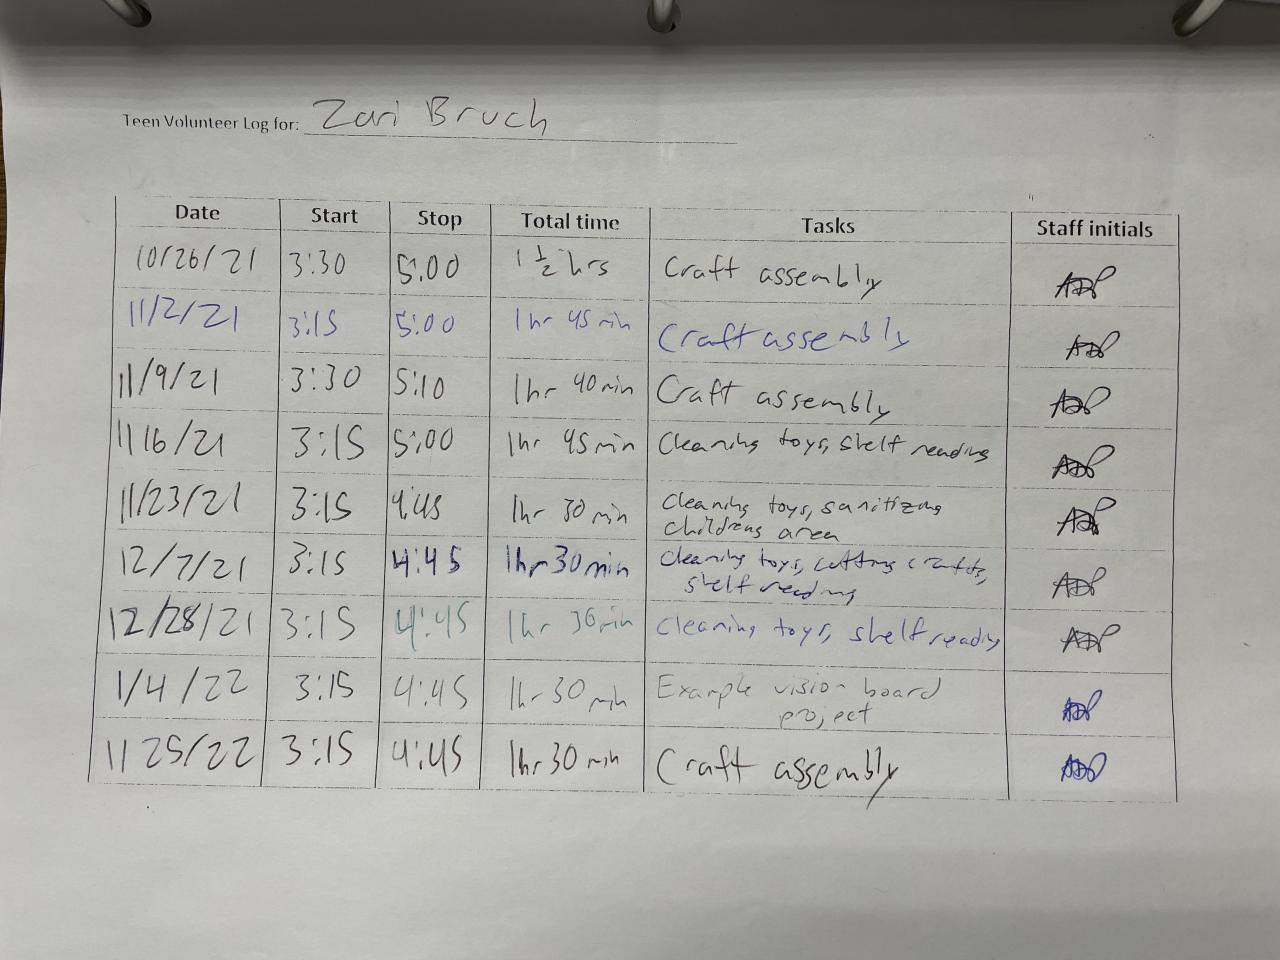 Teen Volunteer Log for: Zari Bruch
Date Start Stop Total time Tasks Staff initials
10/26/21 3:30 5:00 1 1/2 hrs Craft assembly
11/2/21 3:15 5:00 1hr 45 min Craft assembly
11/9/21 3:30 5:10 1hr 40 min Craft assembly
11 16/21 3:15 5:00 1hr 45 min Cleaning toys, shelf reading
11/23/21 3:15 4:45 1hr 30 min Cleaning toys, sanitizing
childrens area
12/7/21 3:15 4:45 1hr 30 min Cleaning toys, cutting crafts,
shelf reading
12/28/21 3:15 4:45 1hr 30min Cleaning toys, shelf reading
1/4/22 3:15 4:45 1hr 30 min Example vision board
project
1/25/22 3:15 4:45 1hr 30 min Craft assembly